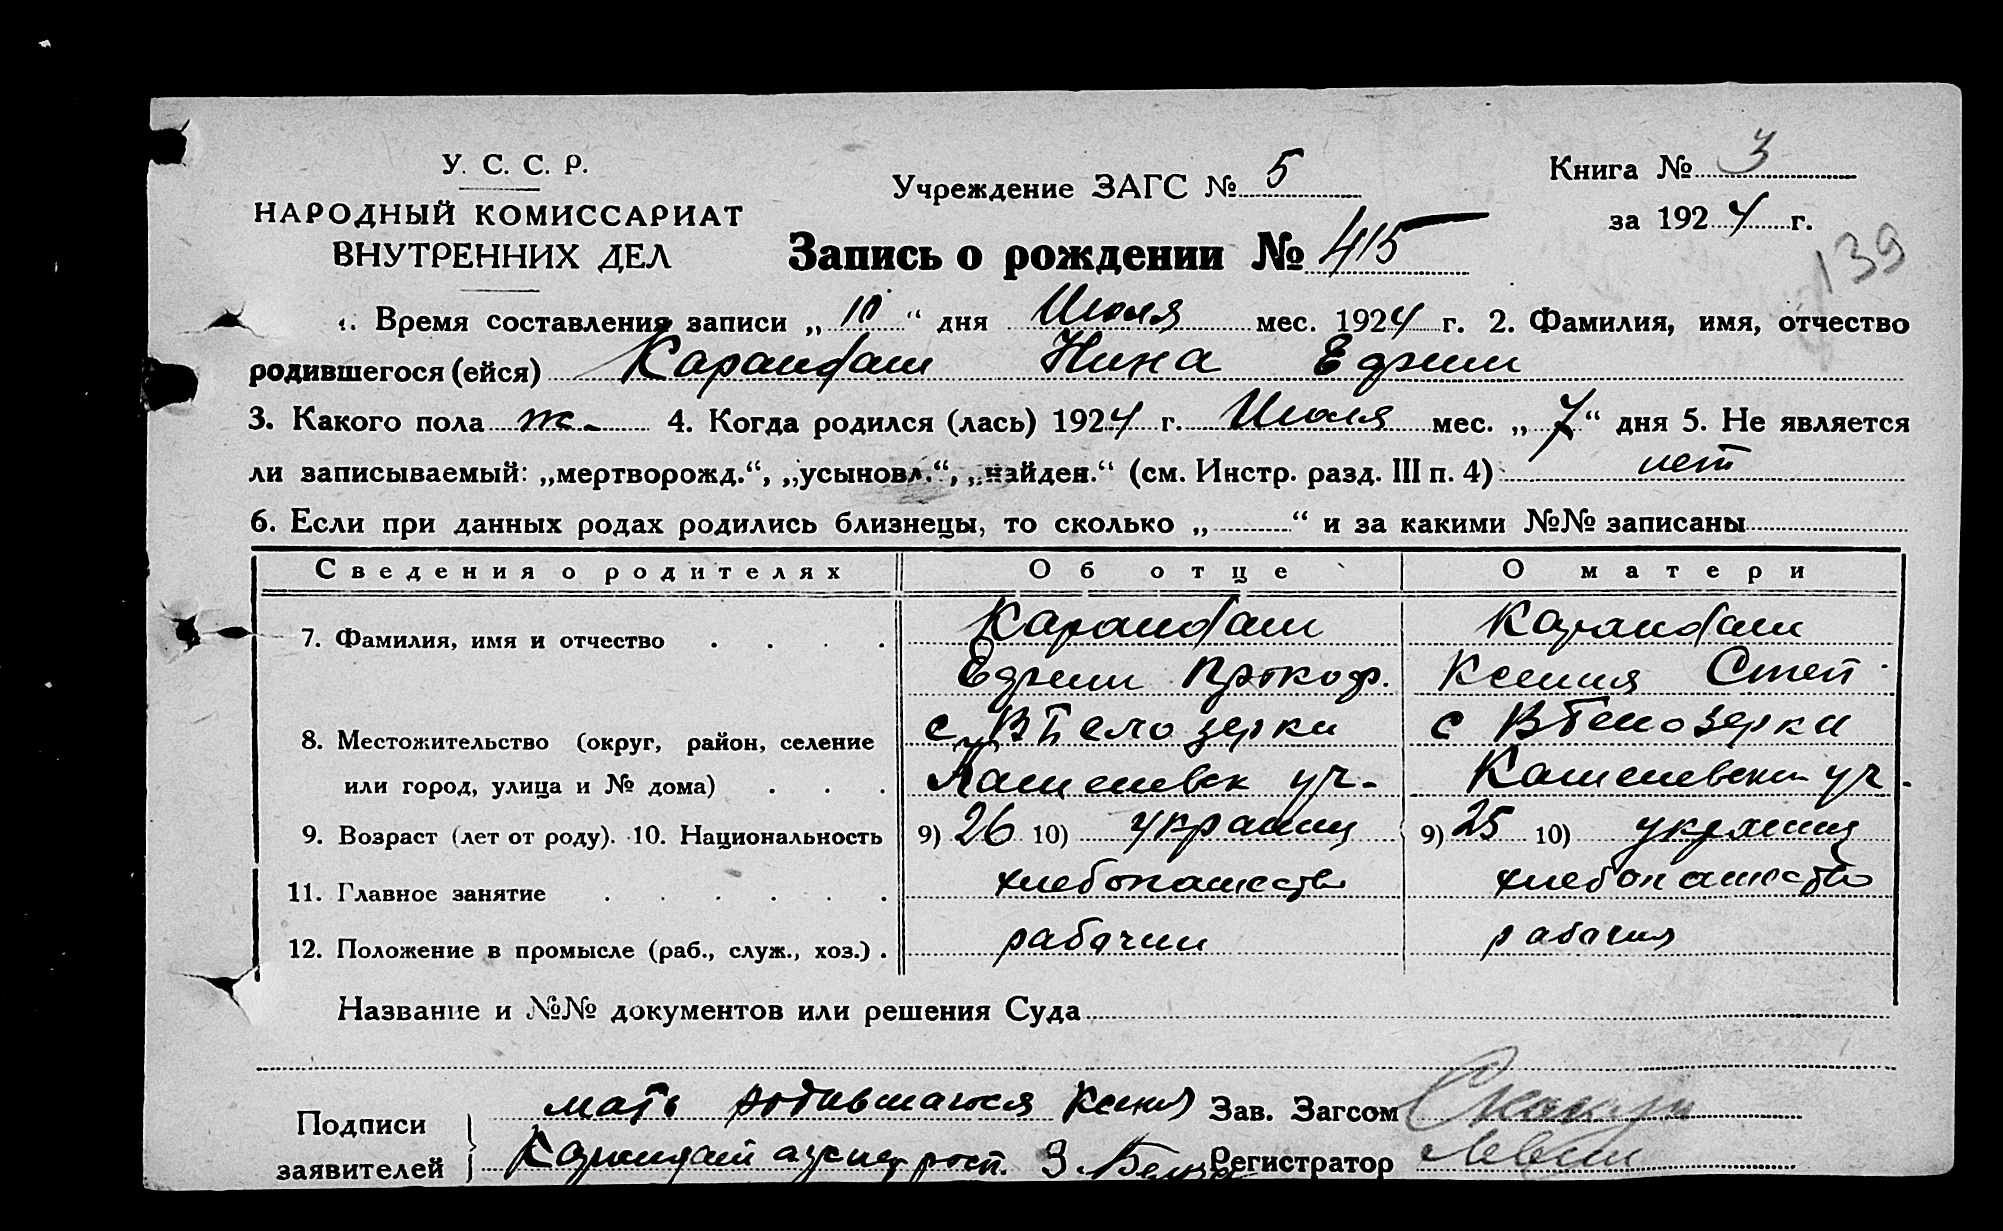 У. С. С. Р.
НАРОДНЫЙ КОМИССАРИАТ
ВНУТРЕННИХ ДЕЛ
Учреждение ЗАГС № 5
Книга № 3
за 1924 г.
139
Запись о рождении № 415
1. Время составления записи „10“ дня Июля мес. 1924 г. 2. Фамилия, имя, отчество
родившегося (ейся) Карандаш Нина
3. Какого пола ж. 4. Когда родился (лась) 1924 г. Июля мес. „7“ дня 5. Не является
ли записываемый: „мертворожд.“, „усыновл.“, „найден.“ (см. Инстр. разд. III п. 4) нет
6. Если при данных родах родились близнецы, то сколько „ “ и за какими №№ записаны
Сведения о родителях Об отце О матери
7. Фамилия, имя и отчество Карандаш Карандаш
Прокоф. Ксения Степ
8. Местожительство (округ, район, селение с В Белозерки с В Белозерки
или город, улица и № дома) уч. уч.
9. Возраст (лет от роду). 10. Национальность 9) 26 10) украинц 9) 25 10) украинц
11. Главное занятие хлебопашеств хлебопашество
12. Положение в промысле (раб., служ., хоз.) рабочий рабочия
Название и №№ документов или решения Суда
Подписи
заявителей
мать родившагося Ксения
Зав. Загсом
Регистратор Левин